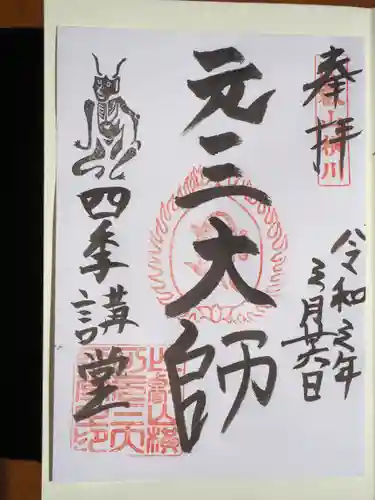 奉拝
令和三年
三月廿六日
元三大師
四季講堂